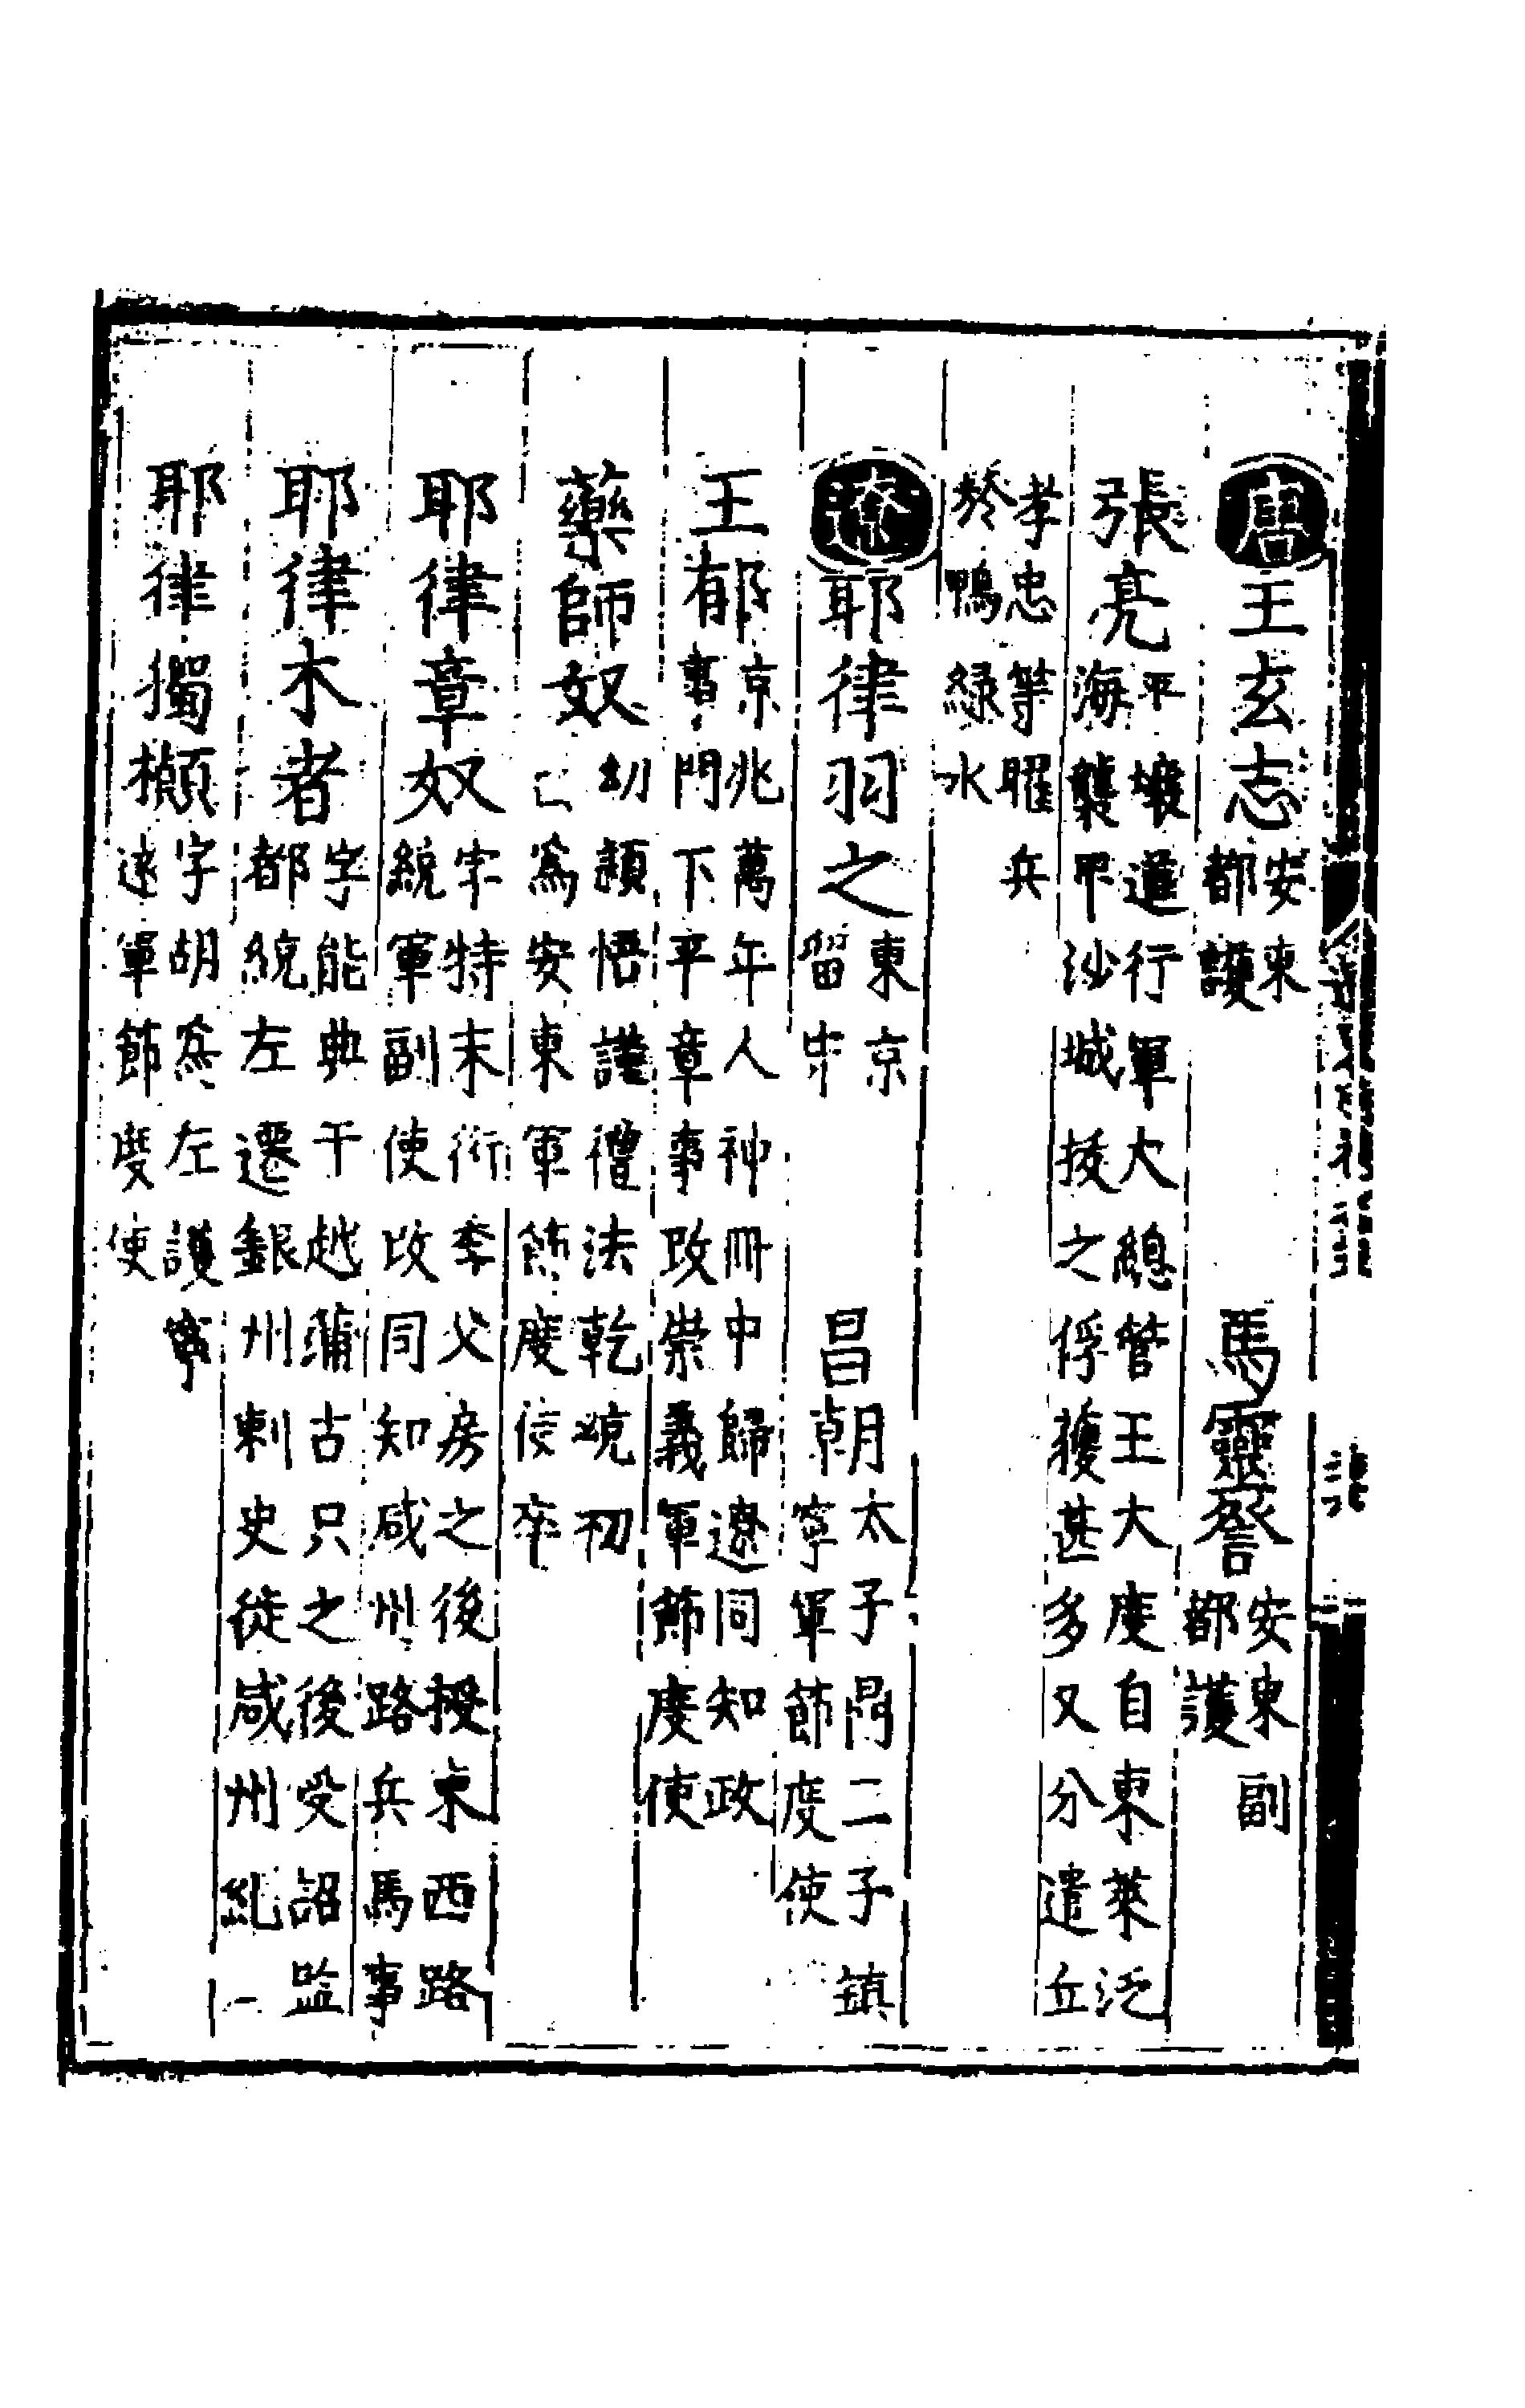 唐王玄志安東
都護
馬靈詧安東副
都護
張亮平壤道行軍大總管王大度自東萊泛
海襲甲沙城拔之俘獲甚多又分遣丘
孝忠等曜兵
於鴨綠水
遼耶律羽之東京
留守
昌朝太子二子鎮
寧軍節度使
王郁京兆萬年人神冊中歸遼同知政
事門下平章事改崇義軍節度使
藥師奴幼穎悟謹禮法乾統初
已為安東軍節度使卒
耶律章奴字特末衍季父房之後授東西路
統軍副使改同知咸州路兵馬事
耶律木者字能典于越蒲古只之後受詔監
都統左遷銀州刺史徙咸州糺
耶律獨攧字胡為左護
遠軍節度使